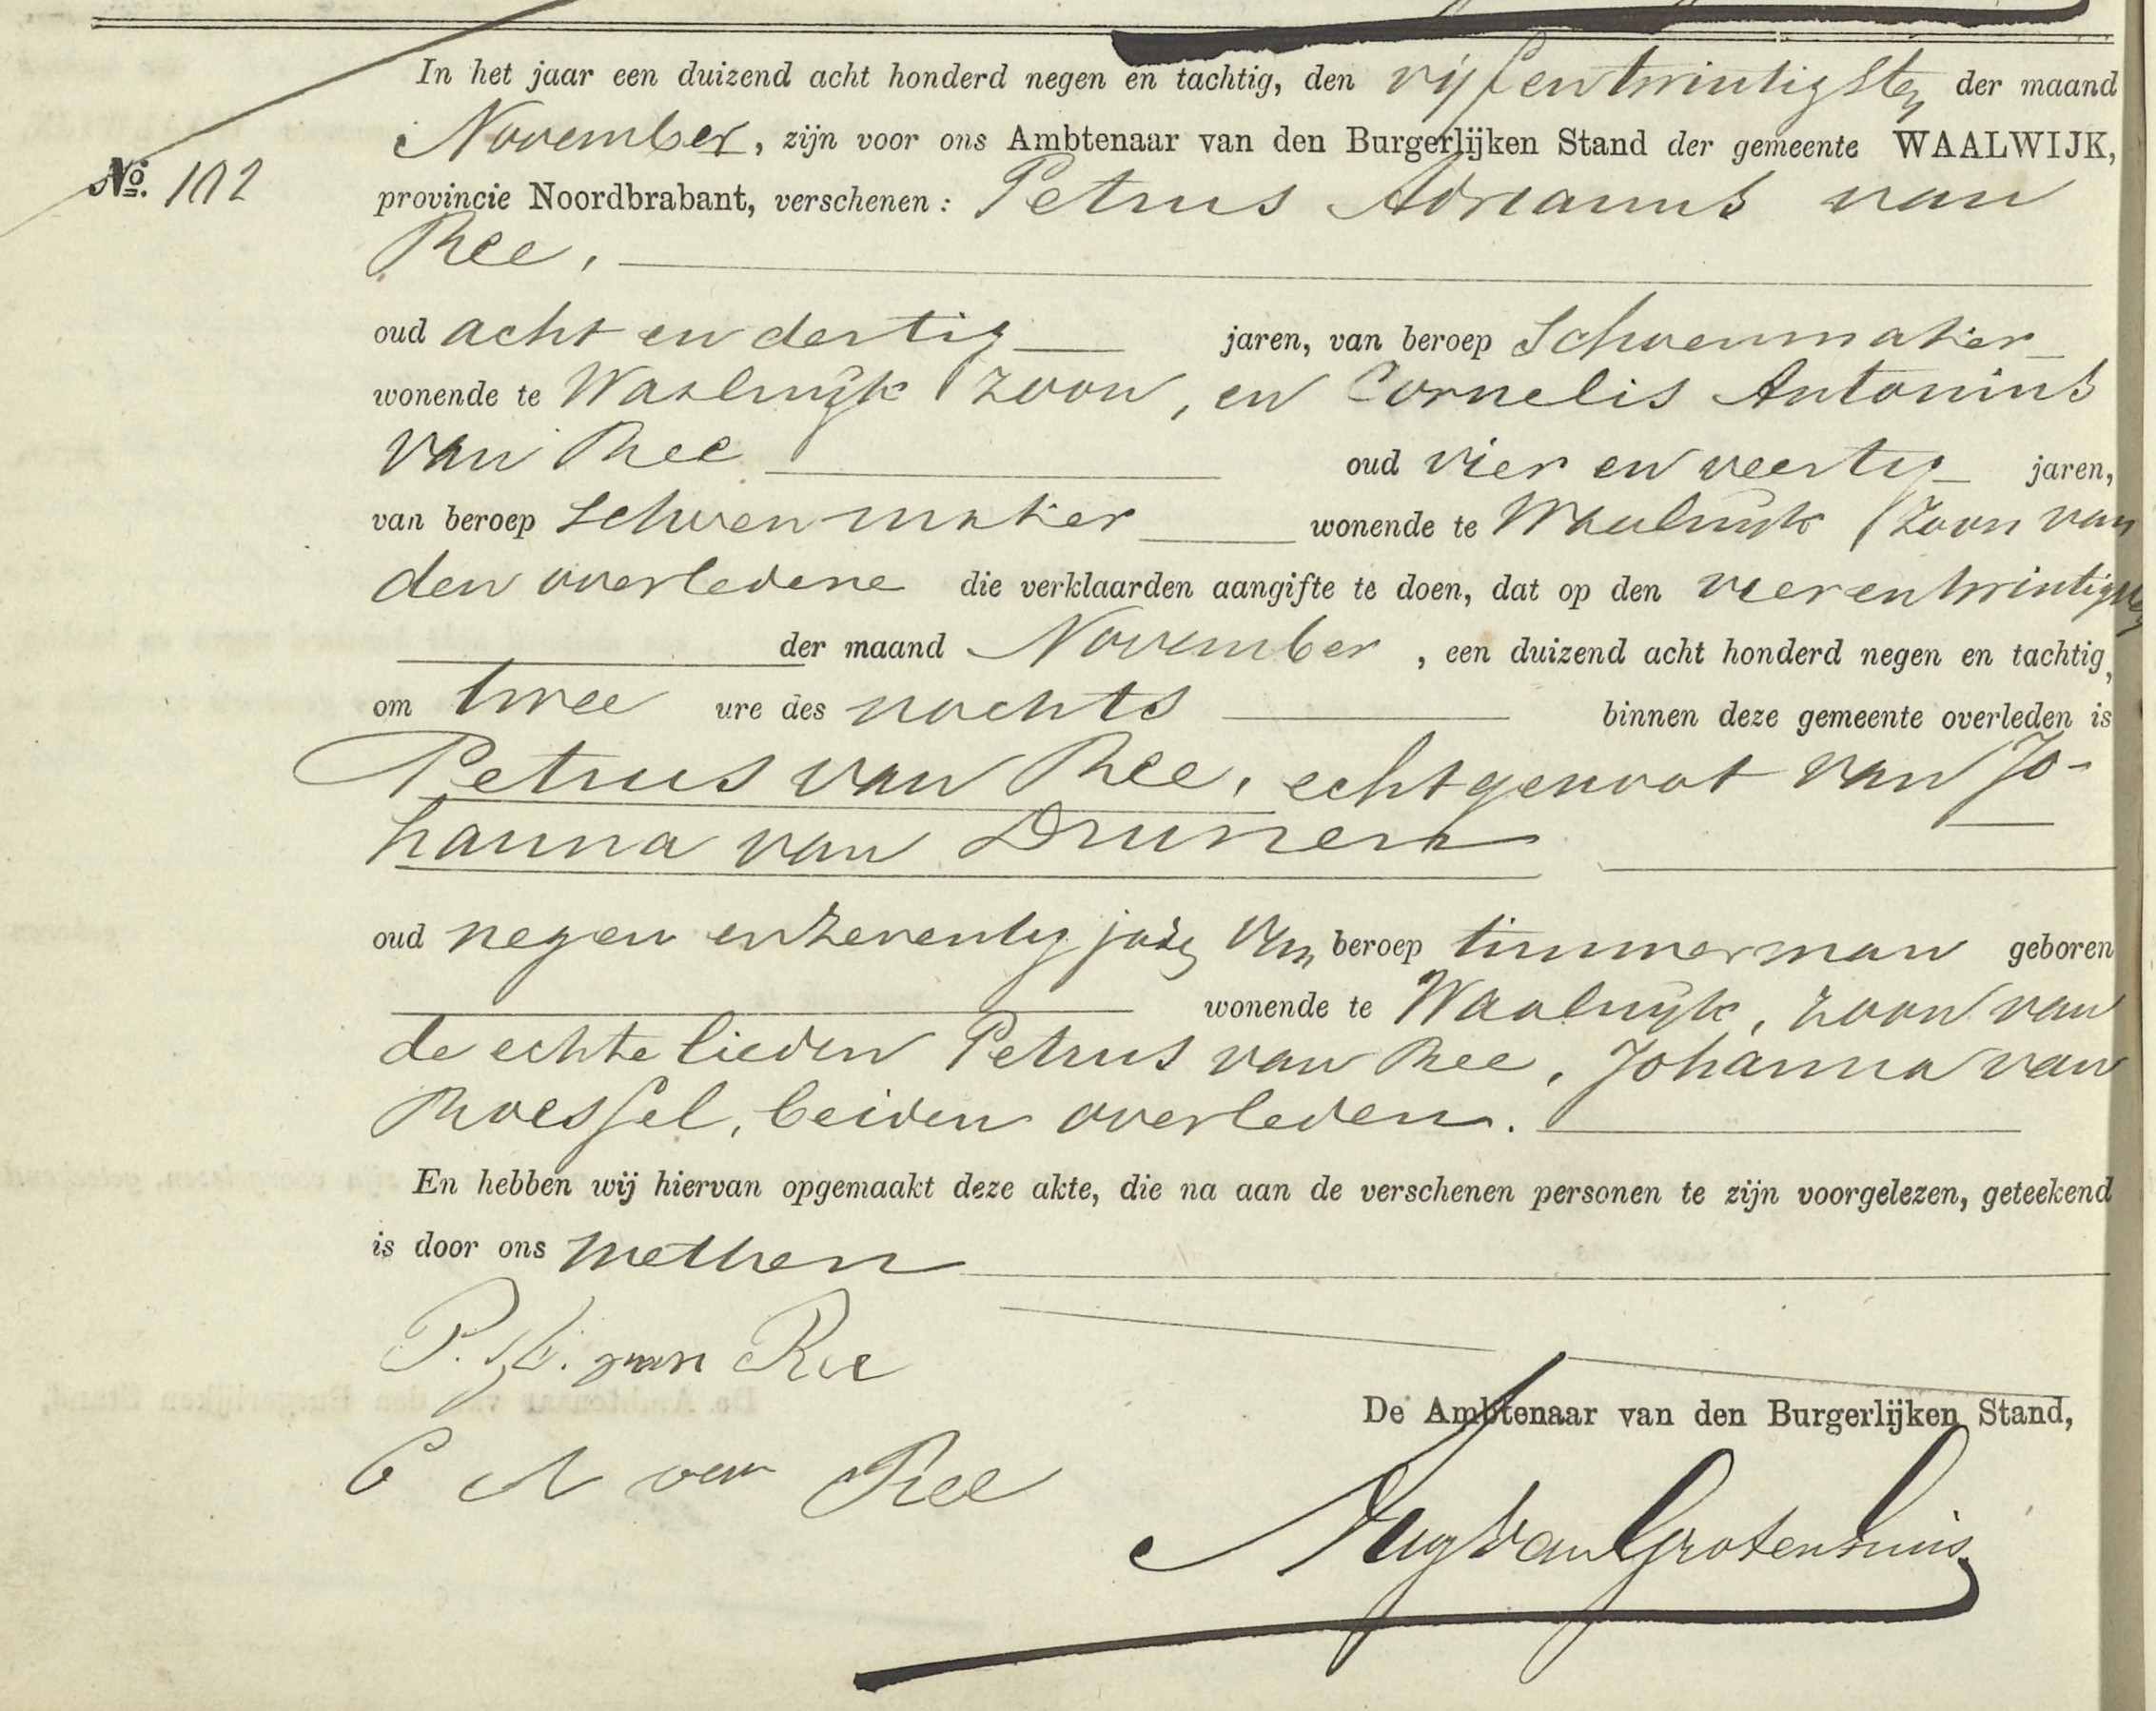 In het jaar een duizend acht honderd negen en tachtig, den vijfentwintigsten der maand
November, zijn voor ons Ambtenaar van den Burgerlijken Stand der gemeente WAALWIJK,
No. 102 provincie Noordbrabant, verschenen: Petrus Adrianus van
Ree,
oud acht en dertig jaren, van beroep Schoenmaker
wonende te Waalwijk (zoon, en Cornelis Antonius
van Ree oud vier en veertig jaren,
van beroep Schoenmaker wonende te Waalwijk (zoon van
den overledene die verklaarden aangifte te doen, dat op den vierentwintigsten
der maand November, een duizend acht honderd negen en tachtig,
om twee ure des nachts binnen deze gemeente overleden is
Petrus van Ree, echtgenoot van Jo-
hanna van Drunen
oud negen enzeventig jaren van beroep timmerman geboren
wonende te Waalwijk, zoon van
de echtelieden Petrus van Ree, Johanna van
Roessel, beiden overleden.
En hebben wij hiervan opgemaakt deze akte, die na aan de verschenen personen te zijn voorgelezen, geteekend
is door ons methen
P. A. van Ree
De Ambtenaar van den Burgerlijken Stand,
C A van Ree
van Grotenhuis